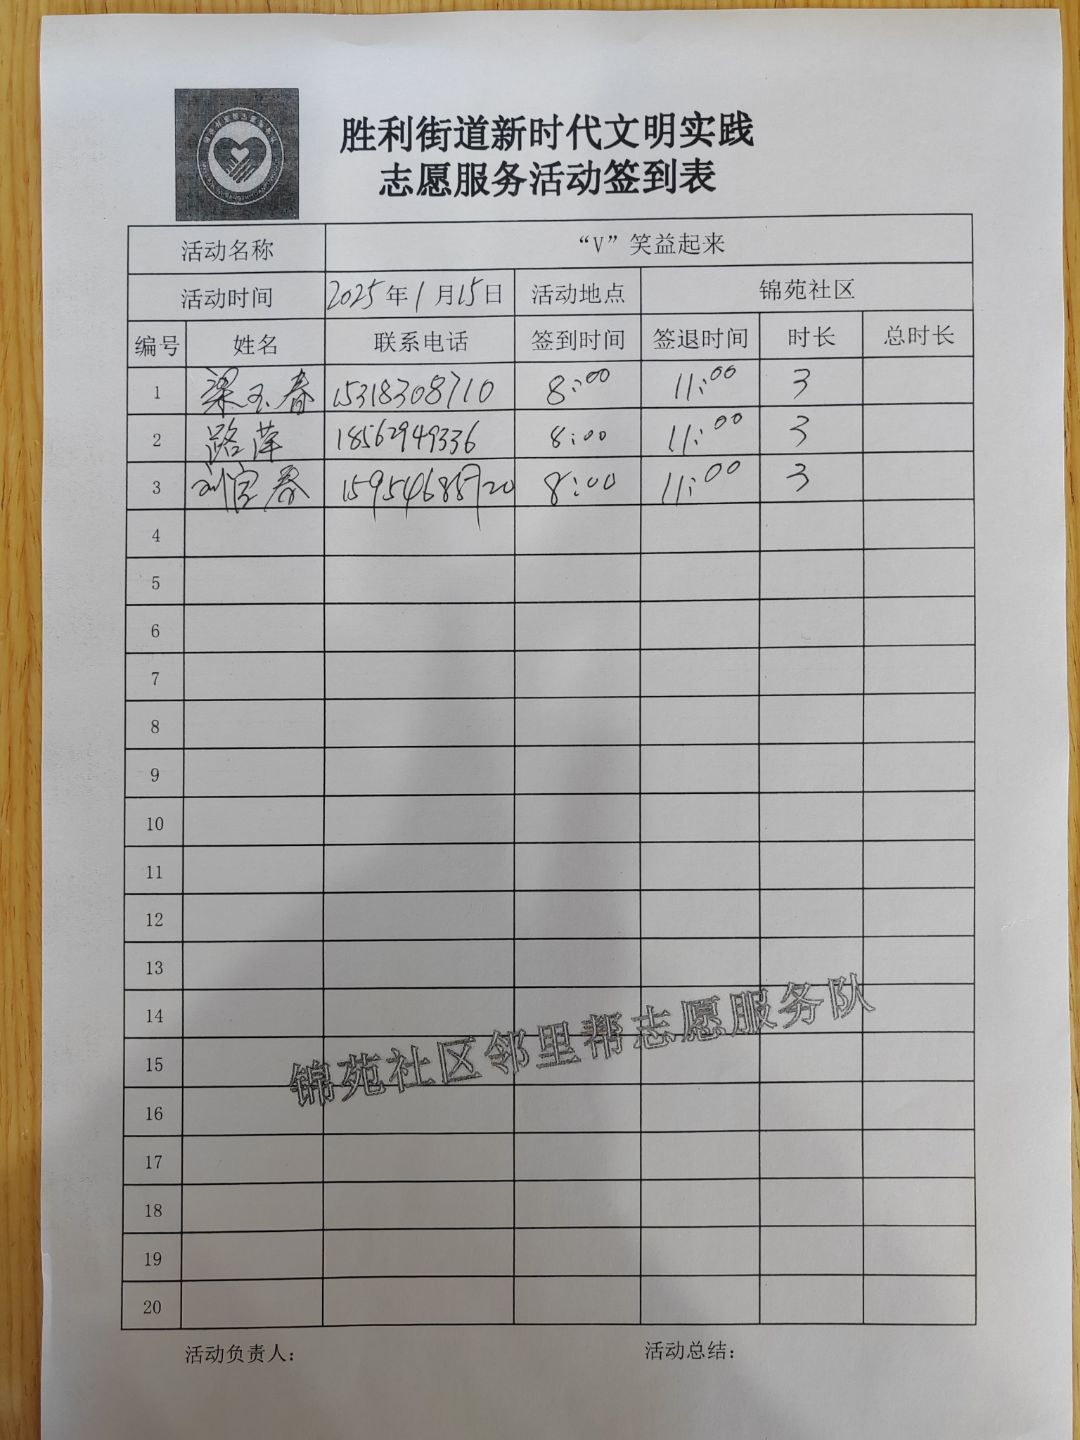 胜利街道新时代文明实践
志愿服务活动签到表
活动名称 “V”笑益起来
活动时间 2025年1月15日 活动地点 锦苑社区
编号 姓名 联系电话 签到时间 签退时间 时长 总时长
1 梁玉春 15318308710 8:00 11:00 3
2 路萍 18562949336 8:00 11:00 3
3 刘宝春 8:00 11:00 3
4
5
6
7
8
9
10
11
12
13
14
15
锦苑社区邻里帮志愿服务队
16
17
18
19
20
活动负责人: 活动总结: